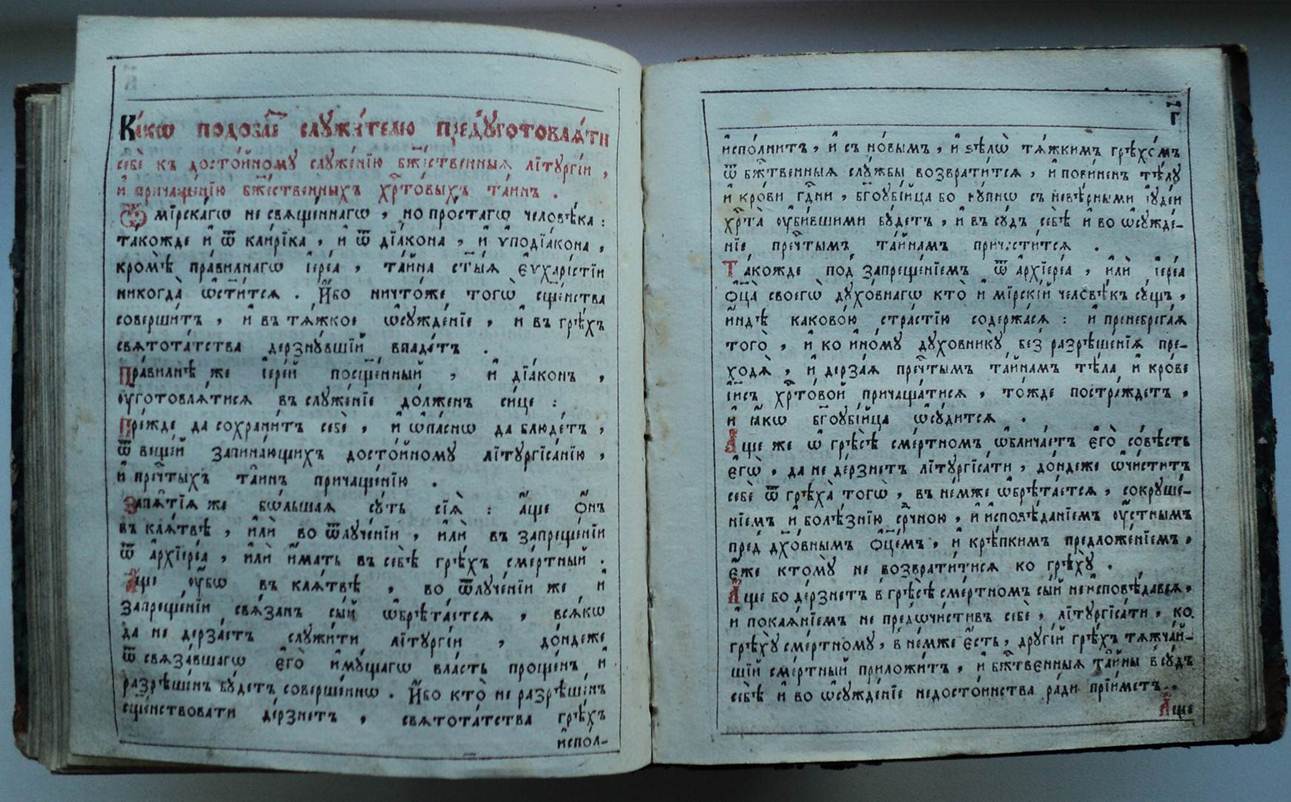 Ка́кѡ подоба́етъ слꙋжи́телю пред̾ꙋготовлѧ́ти
себѐ къ досто́йномꙋ слꙋже́нїю бж҃е́ственныѧ лїтꙋргі́и ,
и҆ причаще́нїю бж҃е́ственныхъ хрⷭ҇то́выхъ та́инъ .
Ѿ мїрска́гѡ не свѧще́ннагѡ , но проста́гѡ человѣ́ка :
та́кожде и҆ ѿ кли́рїка , и҆ ѿ дїа́кона , и҆ ѵ҆подїа́кона ,
кромѣ̀ пра́вилнагѡ і҆ере́а , та́йна ст҃ы́ѧ є҆ѵхарі́стїи
никогда̀ ѡ҆ст҃и́тсѧ . И҆́бо ничто́же тогѡ̀ сщ҃е́нства
соверши́тъ , и҆ въ тѧ́жкое ѡ҆сꙋжде́нїе , и҆ въ грѣ́хъ
свѧтота́тства дерзнꙋ́вшїй впада́етъ .
Пра́вилнѣ же і҆ере́й посщ҃е́нный , и҆ дїа́конъ ,
ᲂу҆готовлѧ́тисѧ въ слꙋже́нїе до́лженъ си́це :
Пре́жде да сохрани́тъ себѐ , и҆ ѡ҆па́снѡ да блюде́тъ ,
ѿ веще́й запина́ющихъ досто́йномꙋ лїтꙋргїса́нїю ,
и҆ прⷱ҇тыхъ та́инъ причаще́нїю .
Запѧ́тїѧ же бѡ́льшаѧ сꙋ́ть сїѧ̀ : а҆́ще ѻ҆́нъ
въ клѧ́твѣ , и҆лѝ во ѿлꙋче́нїи , и҆лѝ въ запреще́нїи
ѿ а҆рхїере́а , и҆лѝ и҆́мать въ себѣ̀ грѣ́хъ сме́ртный .
А҆́ще ᲂу҆́бѡ въ клѧ́твѣ , во ѿлꙋче́нїи же и҆
запреще́нїи свѧ́занъ сый ѡ҆брѣта́етсѧ , всѧ́кѡ
да не дерза́етъ слꙋжи́ти лїтꙋргі́и , до́ндеже
ѿ свѧза́вшагѡ є҆го̀ и҆мꙋ́щагѡ вла́сть проще́нъ и҆
разрѣше́нъ бꙋ́детъ соверше́ннѡ . И҆́бо кто̀ не разрѣше́нъ
сщ҃е́нствовати де́рзнетъ , свѧтота́тства грѣ́хъ
и҆спо́л-
г҃
и҆спо́лнитъ , и҆ съ но́вымъ , и҆ ѕѣлѡ̀ тѧ́жкимъ грѣхо́мъ
ѿ бж҃твенныѧ слꙋ́жбы возврати́тсѧ , и҆ пови́ненъ тѣ́лꙋ
и҆ кро́ви гдⷭ҇ни , бг҃оꙋбі́йца бо кꙋ́пнѡ съ невѣ́рными і҆ꙋде́и
хрⷭ҇та̀ ᲂу҆би́вшими бꙋ́детъ , и҆ въ сꙋ́дъ себѣ̀ и҆ во ѡ҆сꙋжде́-
нїе прⷱ҇тымъ та́йнамъ причⷭ҇ти́тсѧ .
Та́кожде под̾ запреще́нїемъ ѿ а҆рхїере́а , и҆лѝ і҆ере́а
ѻ҆ц҃а̀ своегѡ̀ дꙋхо́внагѡ кто̀ и҆ мїрскі́й человѣ́къ сꙋ́щъ ,
и҆ндѣ̀ каково́ю стра́стїю содержа́сѧ : и҆ пренебрега́ѧ
того̀ , и҆ ко и҆но́мꙋ дꙋхо́вникꙋ без̾ разрѣше́нїѧ пре-
ходѧ̀ , и҆ дерза́ѧ прⷱ҇тымъ та́йнамъ тѣ́ла и҆ кро́ве
і҆и҃съ хрⷭ҇то́вой причаща́тисѧ , то́жде постра́ждетъ ,
и҆ ꙗ҆́кѡ бг҃оꙋбі́йца ѡ҆сꙋ́дитсѧ .
А҆́ще же ѡ҆ грѣсѣ̀ сме́ртномъ ѡ҆блича́етъ є҆го̀ со́вѣсть
є҆гѡ̀ , да не де́рзнетъ лїтꙋргїса́ти , до́ндеже ѡ҆чи́ститъ
себѐ ѿ грѣха̀ тогѡ̀ , въ не́мже ѡ҆брѣта́етсѧ , сокрꙋше́-
нїемъ и҆ болѣ́знїю срⷣе́чною , и҆ и҆сповѣ́данїемъ ᲂу҆́стнымъ
пред̾ дх҃о́внымъ ѻ҆ц҃е́мъ , и҆ крѣ́пкимъ предложе́нїемъ ,
є҆́же ктомꙋ̀ не возврати́тисѧ ко грѣхꙋ̀ .
А҆́ще бо де́рзнетъ в̾ грѣсѣ̀ сме́ртномъ сый не и҆сповѣ́давсѧ ,
и҆ покаѧ́нїемъ не пред̾ѡчи́стивъ себѐ , лїтꙋргїса́ти , ко
грѣхꙋ̀ сме́ртномꙋ , в̾ не́мже є҆́сть , дрꙋгі́й грѣ́хъ тѧжча́й-
шїй сме́ртный приложи́тъ , и҆ бж҃твенныѧ та́йны в̾ сꙋ́дъ
себѣ̀ и҆ во ѡ҆сꙋжде́нїе недосто́инства ра́ди прїи́метъ .
А҆́ще